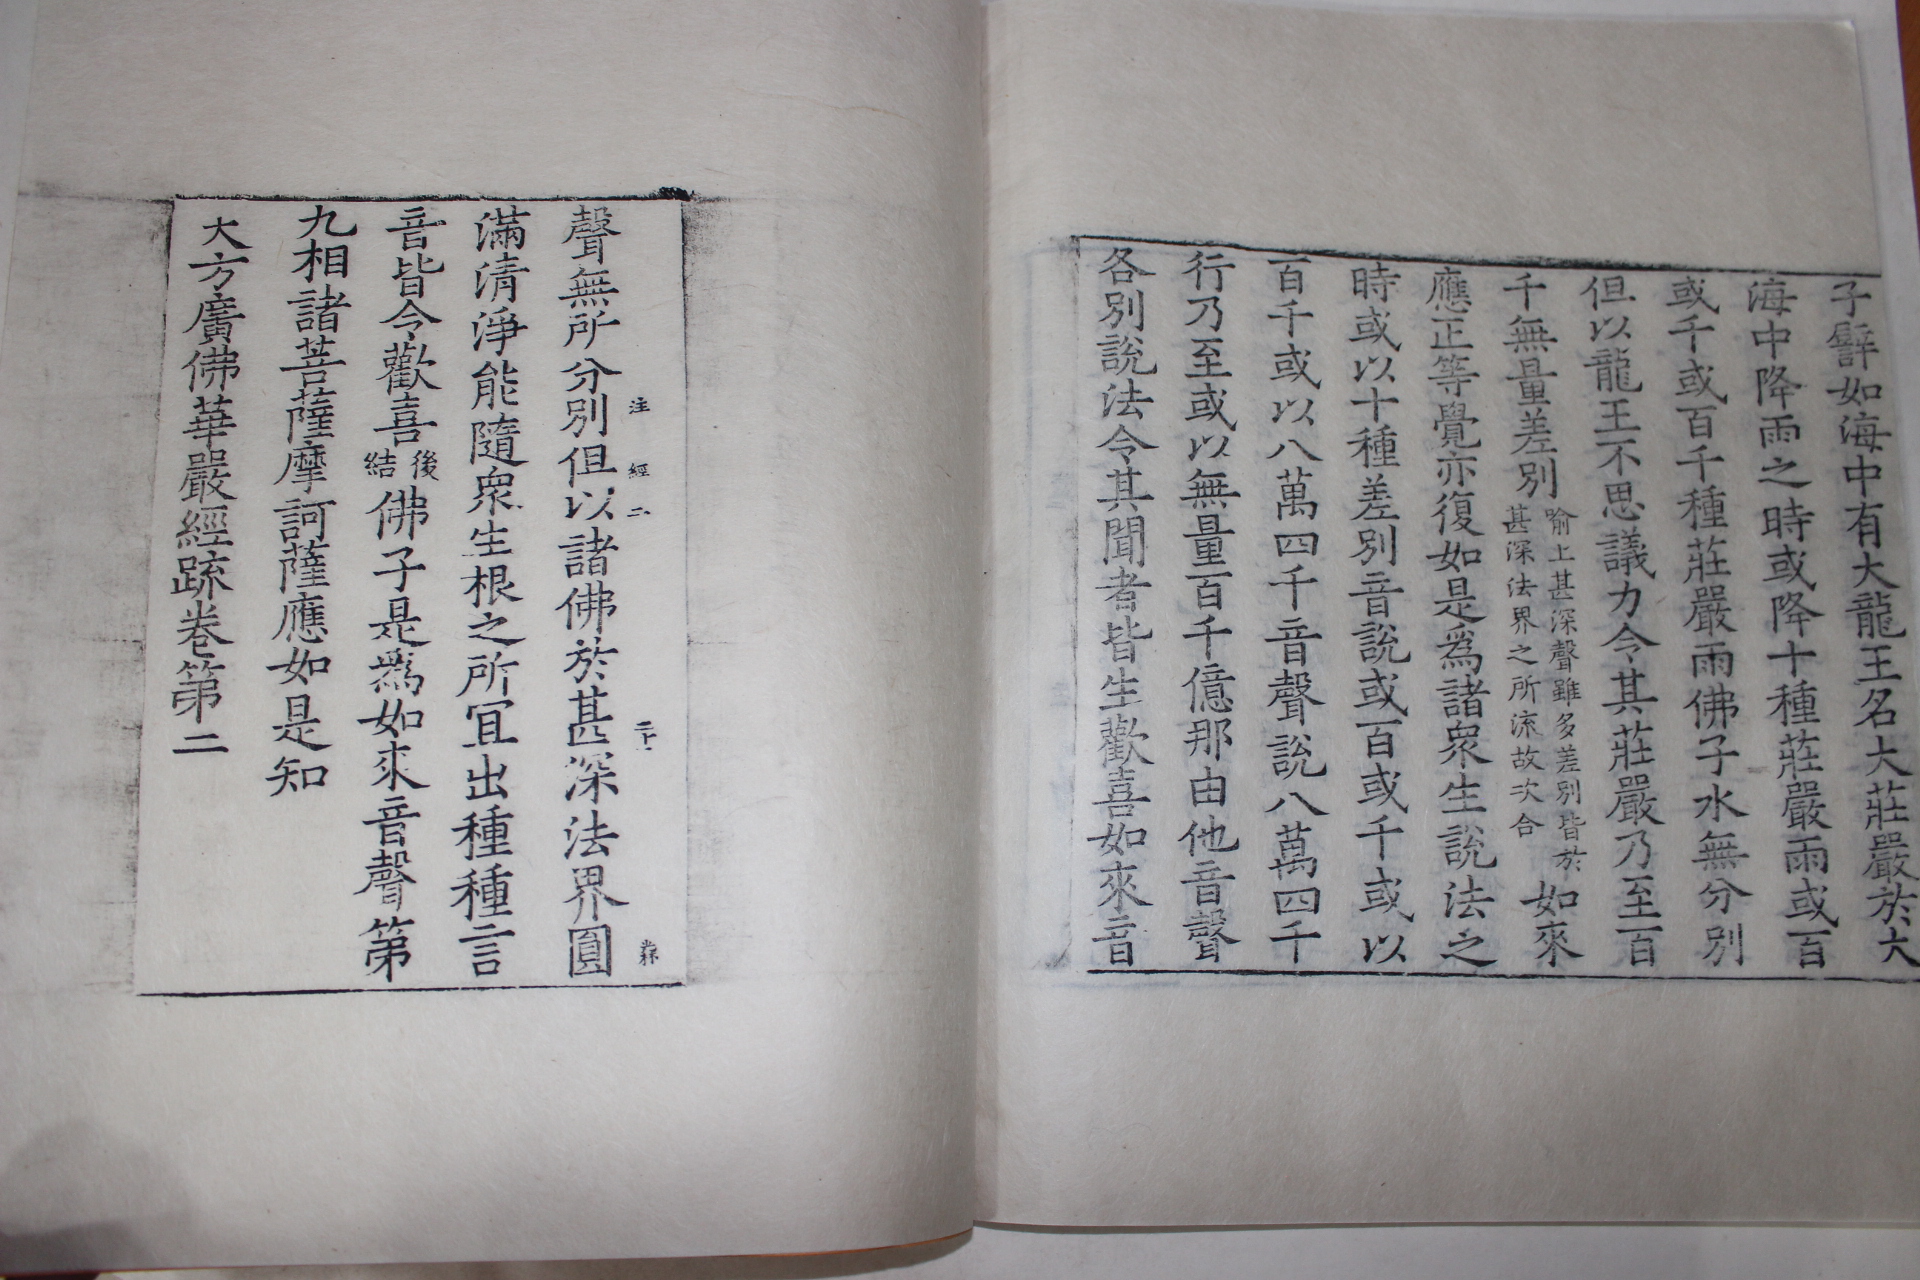 子譬如海中有大龍王名大莊嚴於大
海中降雨之時或降十種莊嚴雨或百
或千或百千種莊嚴雨佛子水無分別
但以龍王不思議力令其莊嚴乃至百
千無量差別喻上甚深聲雖多差別皆於甚深法界之所流故次合如來
應正等覺亦復如是爲諸衆生說法之
時或以十種差別音說或百或千或以
百千或以八萬四千音聲說八萬四千
行乃至或以無量百千億那由他音聲
各別說法令其聞者皆生歡喜如來音
注經二 二十一
聲無所分別但以諸佛於甚深法界圓
滿清淨能隨衆生根之所冝出種種言
音皆令歡喜後結佛子是爲如來音聲第
九相諸菩薩摩訶薩應如是知
大方廣佛華嚴經疏卷第二